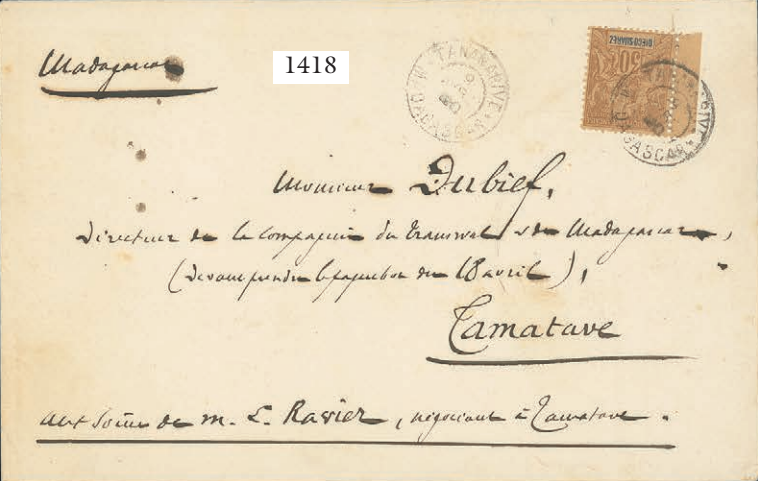 Madagascar
1418
TANANARIVE
MADAGASCAR
DIEGO SUAREZ
50c
MADAGASCAR
Monsieur Dubief,
Directeur de la Compagnie du Transvaal & de Madagascar,
(devant prendre le paquebot du 18 avril),
Tamatave
aux soins de M. L. Ravier, négociant à Tamatave.